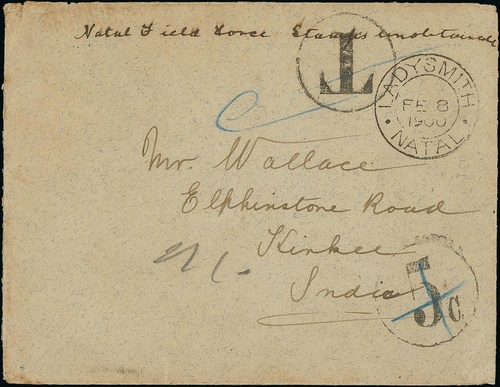 Natal Field Force Stamps unobtainable
T
LADYSMITH
FE 8
1900
NATAL
Mr. Wallace
Elphinstone Road
Kirkee
India
5 c